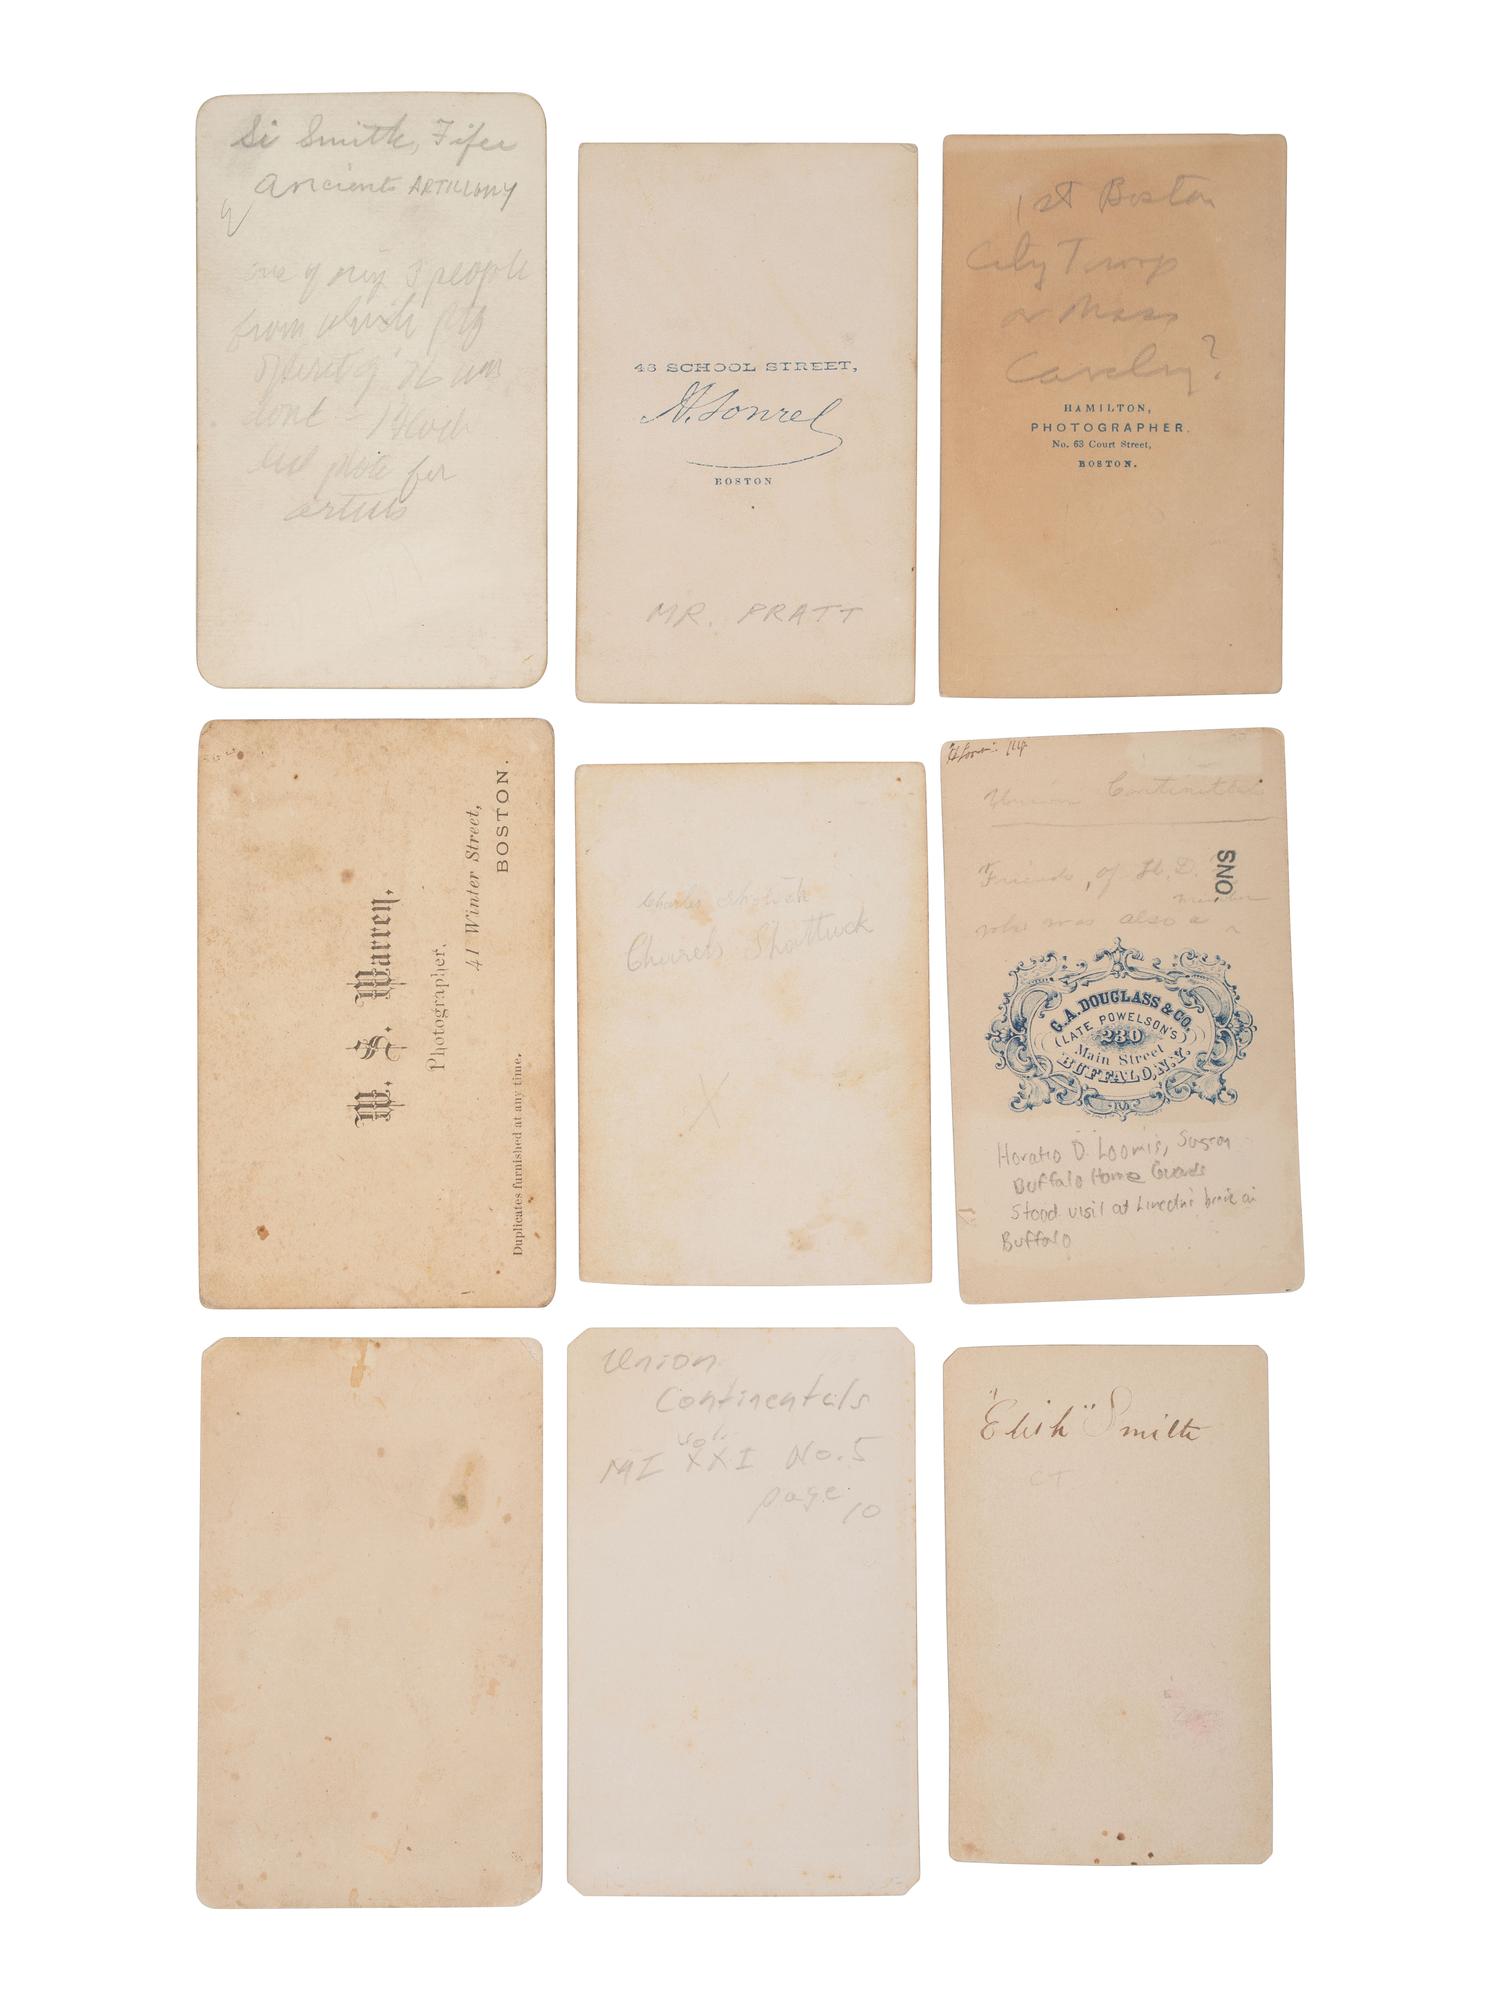 Si Smith, Fifer
Ancient ARTILLERY
one of only 3 people
from which ptg
Spirit of '76 was
done -
and pose for
artists
48 SCHOOL STREET,
A. Sonrel
BOSTON
MR. PRATT
1st Boston
City Troop
or Mass
Cavalry?
HAMILTON,
PHOTOGRAPHER.
No. 63 Court Street,
BOSTON.
W. S. Warren,
Photographer.
41 Winter Street,
BOSTON.
Duplicates furnished at any time.
Charles
Shattuck
X
Union Continentals
Friends, of H. D.
member
who was also a ^
SNO
G. A. DOUGLASS & CO.
(LATE POWELSON'S)
230
Main Street
BUFFALO, N.Y.
Horatio D. Loomis, Surgon
Buffalo Home Guards
Stood visil at Lincoln's
Buffalo
Union
Continentals
vol.
MI XXI No. 5
page 10
"Elish" Smith
CT